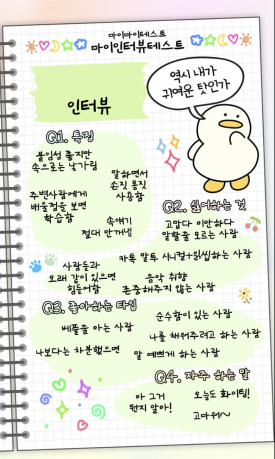 마이마이테스트
마이인터뷰테스트
역시 내가
귀여운 탓인가
인터뷰
Q1. 특징
붙임성 좋지만
속으로는 낯가림
말하면서
손짓 몸짓
사용함
주변사람에게
배울점을 보면
학습함
속얘기
절대 안꺼냄
사람들과
오래 같이 있으면
힘들어함
Q2. 싫어하는 것
고맙다 미안하다
말할줄 모르는 사람
카톡 말도 시니컬+읽씹하는 사람
음악 취향
존중해주지 않는 사람
Q3. 좋아하는 타입
순수함이 있는 사람
베풀줄 아는 사람
나를 채워주려고 하는 사람
나보다는 차분했으면
말 예쁘게 하는 사람
Q4. 자주 하는 말
아 그거
뭔지 알아!
오늘도 화이팅!
고마워~